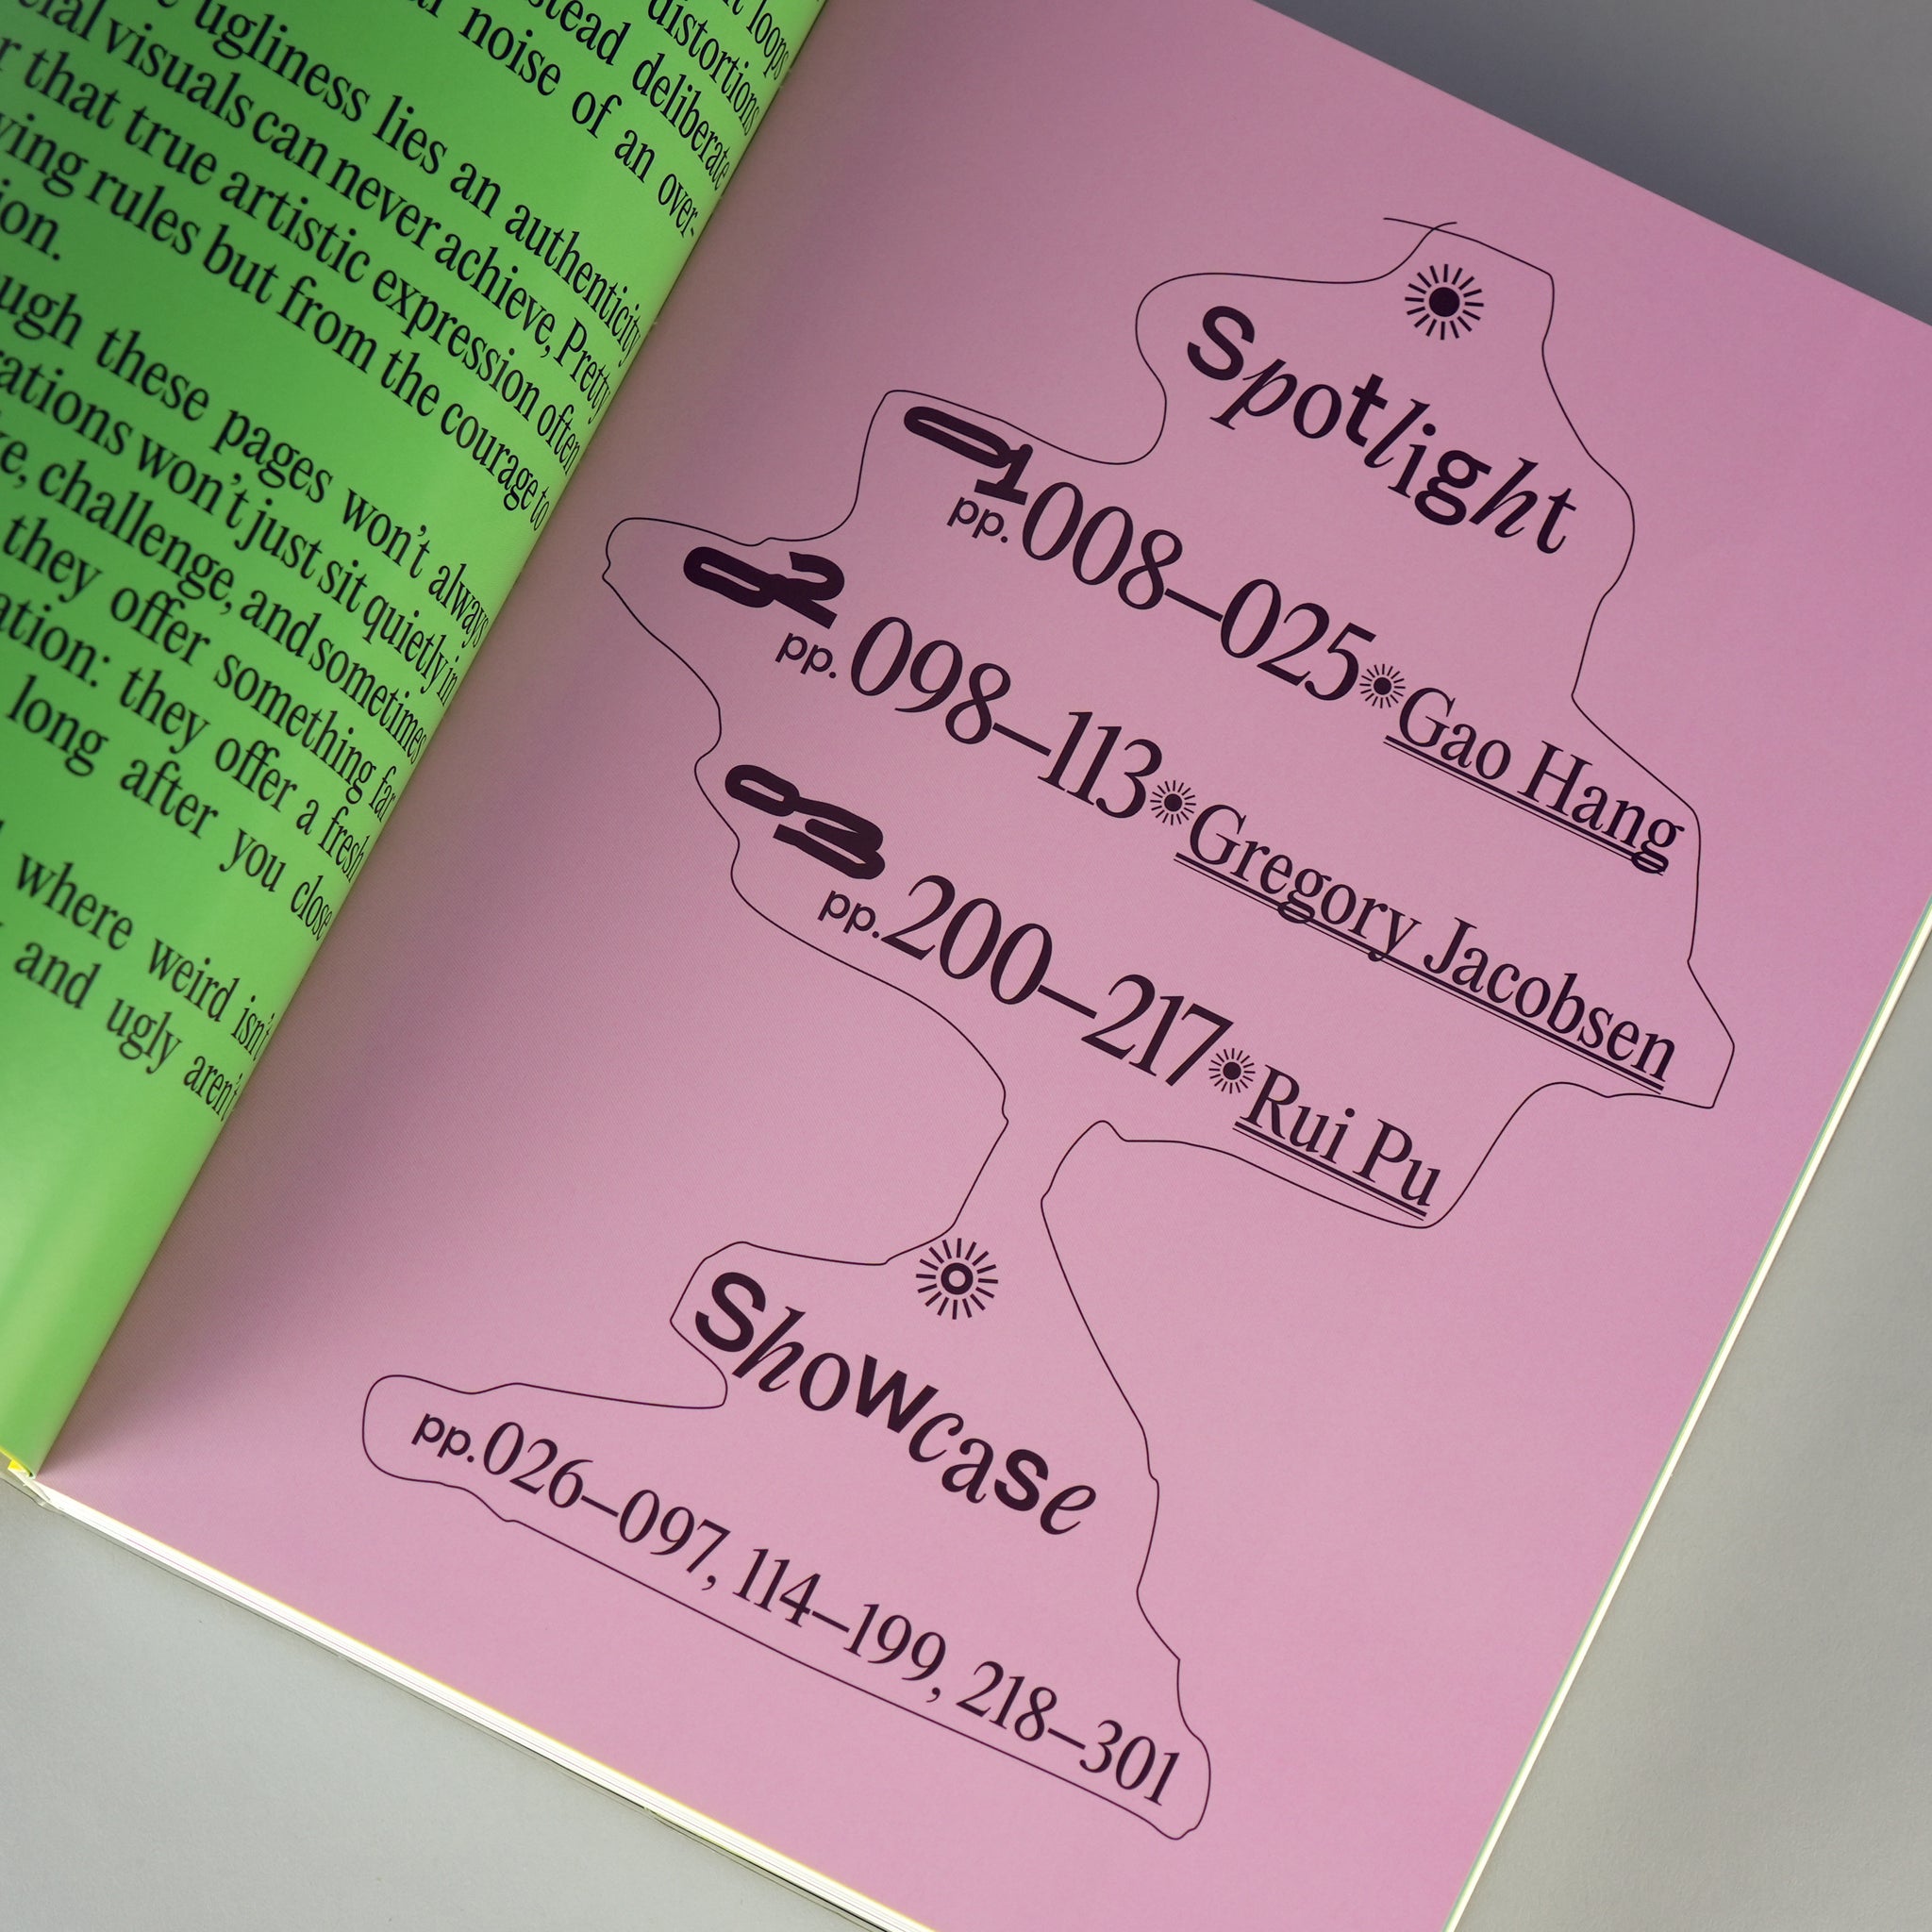 loops
distortions
instead deliberate
noise of an over-
ugliness lies an authenticity
visuals can never achieve, Pretty
that true artistic expression often
rules but from the courage to
these pages won't always
won't just sit quietly in
challenge, and sometimes
they offer something far
they offer a fresh
long after you close
where weird isn't
and ugly aren't
Spotlight
01
pp.008–025 Gao Hang
02
pp.098–113 Gregory Jacobsen
03
pp.200–217 Rui Pu
Showcase
pp.026–097, 114–199, 218–301